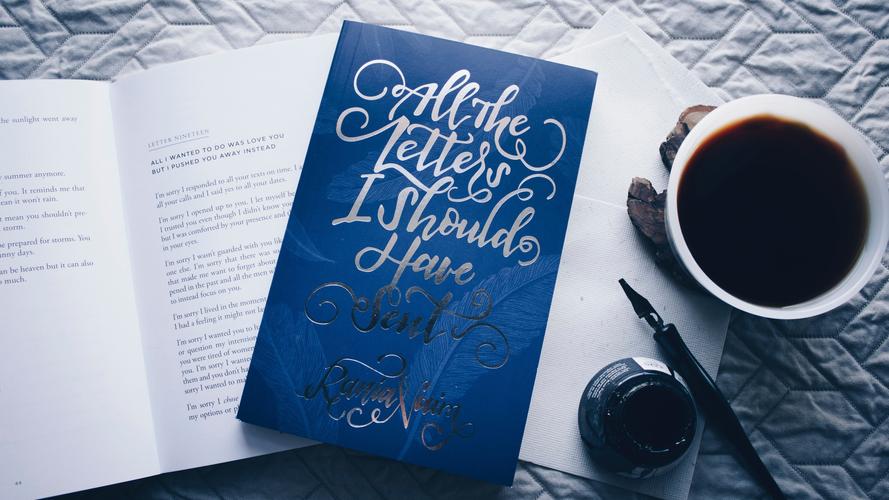 the sunlight went away
summer anymore.
f you. It reminds me that
ean it won't rain.
t mean you shouldn't pre-
storm.
be prepared for storms. You
nny days.
an be heaven but it can also
o much.
44
LETTER NINETEEN
ALL I WANTED TO DO WAS LOVE YOU
BUT I PUSHED YOU AWAY INSTEAD
I'm sorry I responded to all your texts on time. I a
all your calls and I said yes to all your dates.
I'm sorry I opened up to you. I let myself be
I trusted you even though I didn't know you
but I was comforted by your presence and t
in your eyes.
I'm sorry I wasn't guarded with you like
one else. I'm sorry that there was so
that made me want to forget about
pened in the past and all the men w
to instead focus on you.
I'm sorry I lived in the moment
I had a feeling it might not la
I'm sorry I wanted you to h
or question my intention
you were tired of women
you. I'm sorry I wante
them and you don't ha
sorry I wanted to ma
I'm sorry I chose
my options or p
All The
Letters
I Should
Have
Sent
Rania Naim